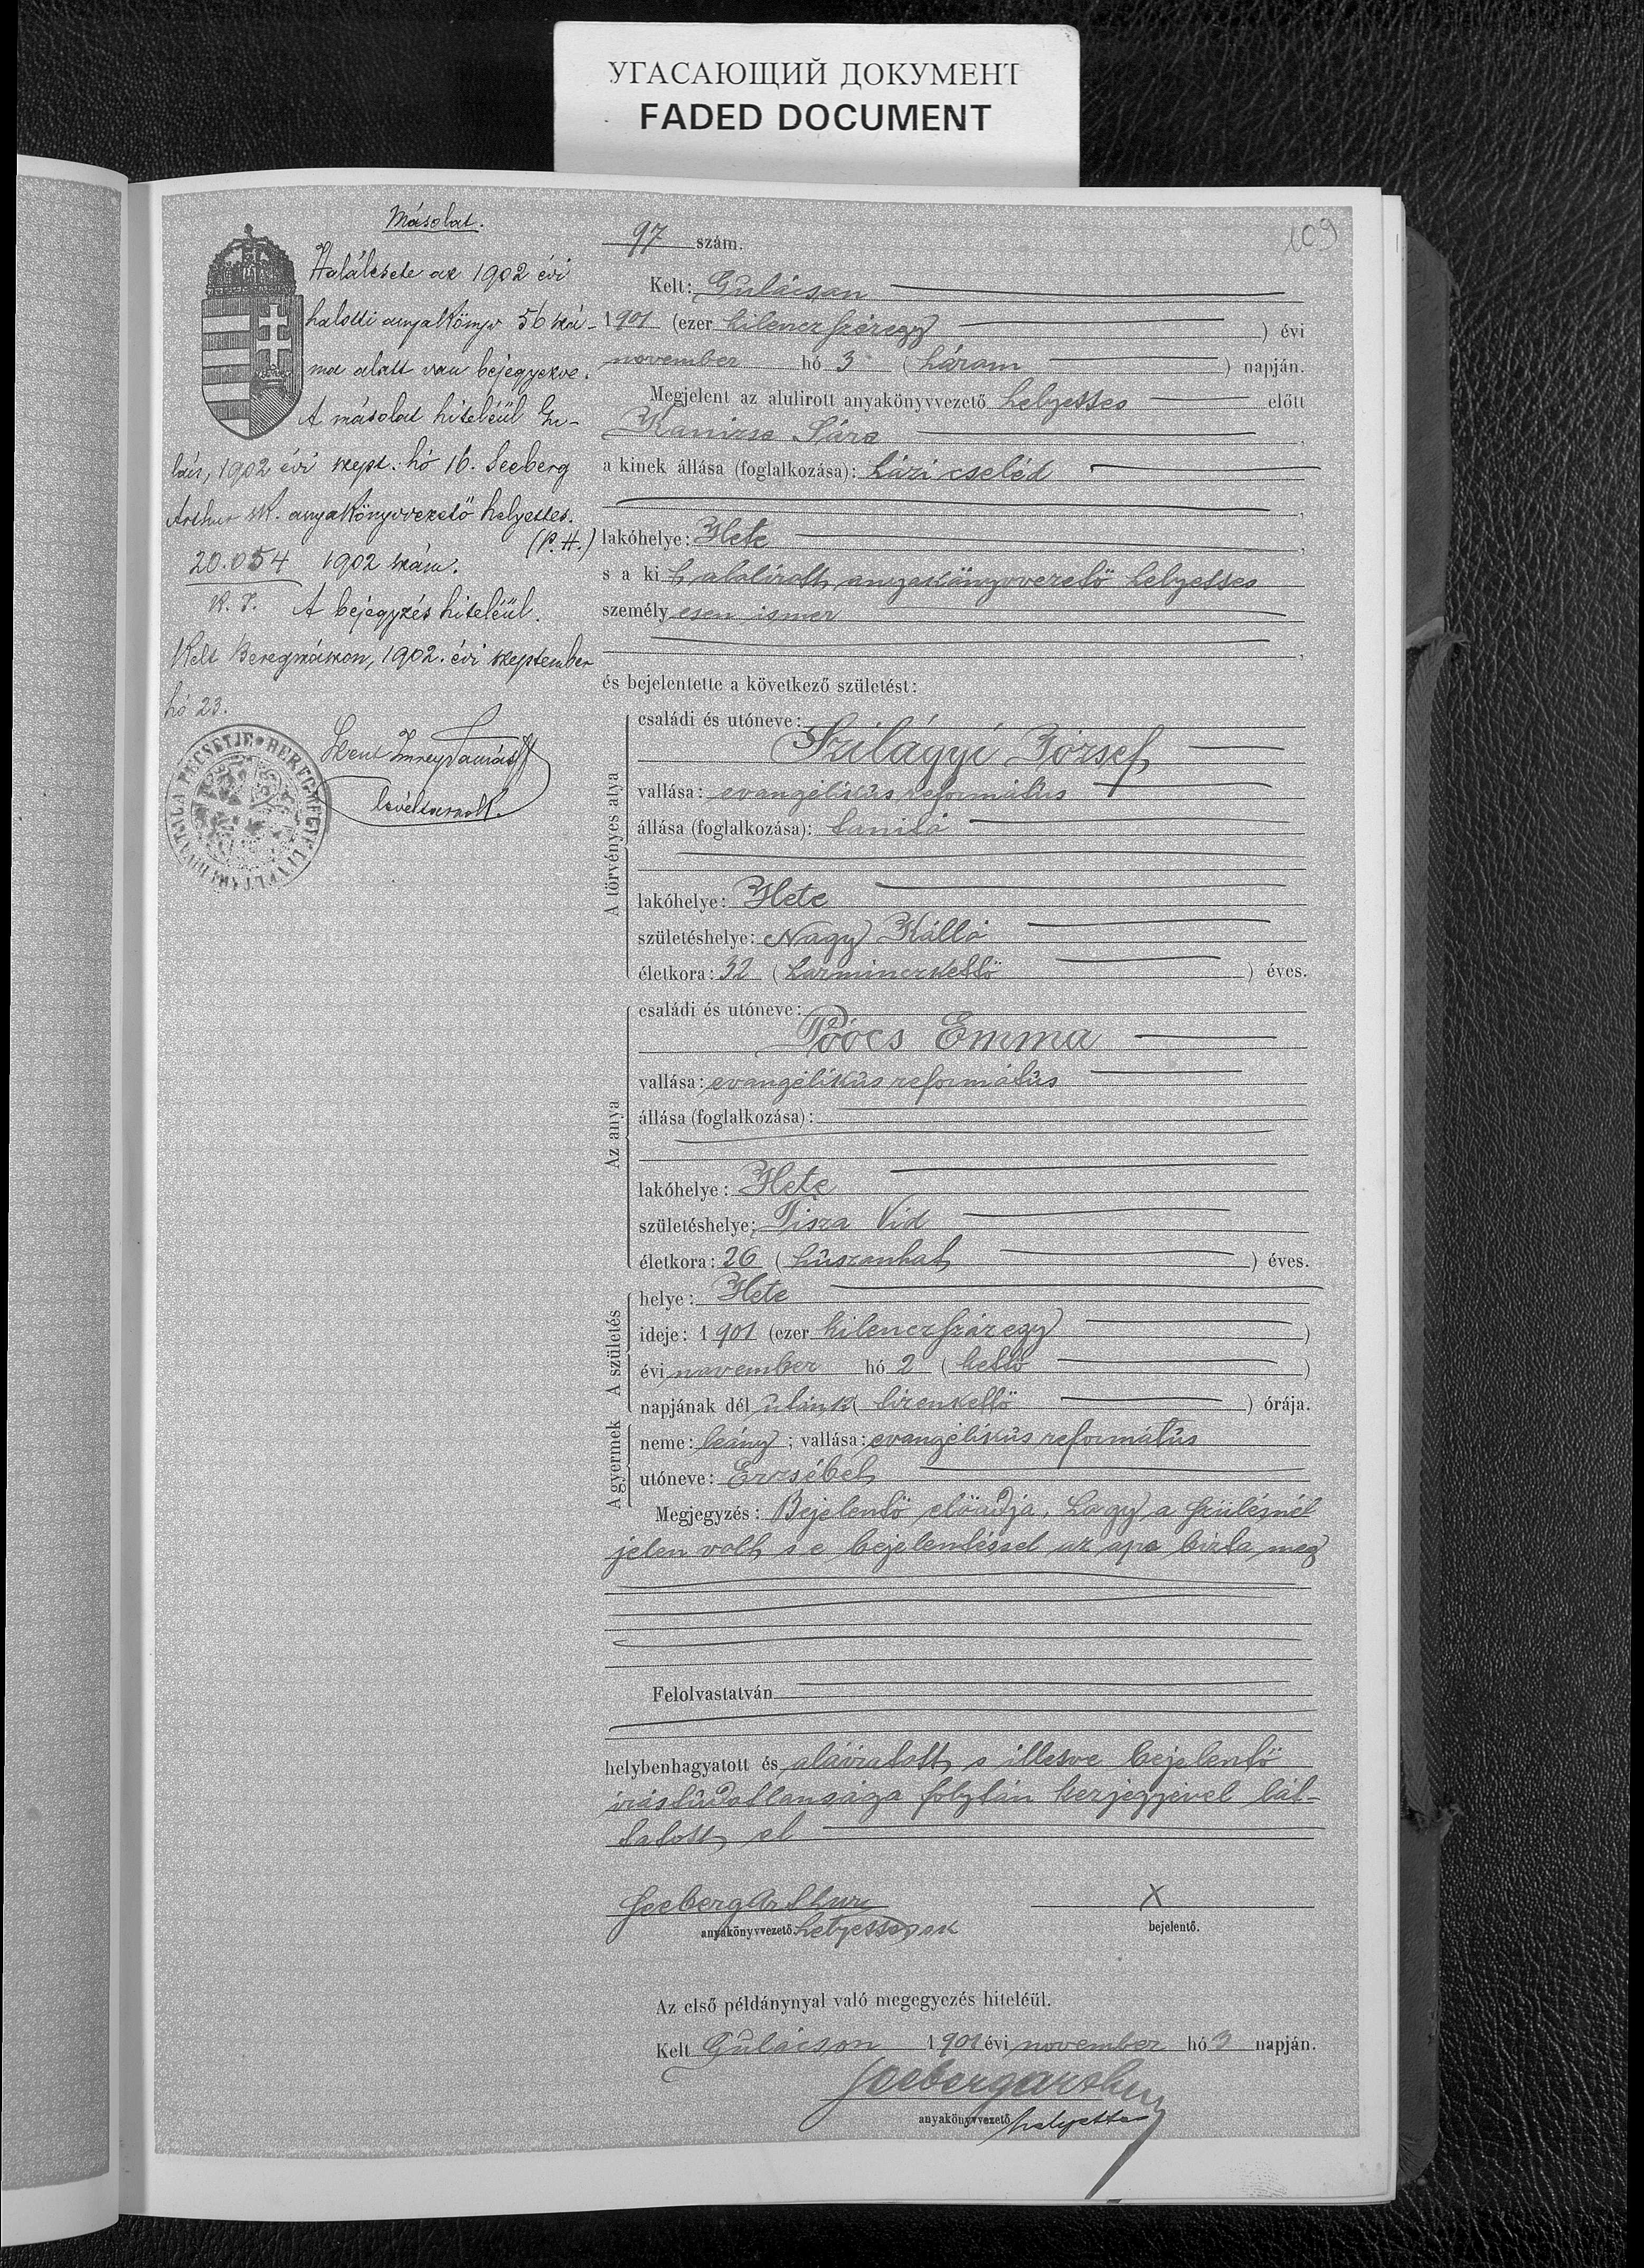 УГАСАЮЩИЙ ДОКУМЕНТ
FADED DOCUMENT
109
Másolat.
Halálesete az 1902 évi
halotti anyakönyv 56 szá-
ma alatt van bejegyezve.
A másolat hiteléül Gu-
lács, 1902 évi szept. hó 16. Seeberg
Arthur sk. anyakönyvvezető helyettes.
(P. H.)
20.054 1902 szám.
A bejegyzés hiteléül.
Kelt Beregszászon, 1902. évi szeptember
hó 23.
levéltárnok.
97 szám.
Kelt: Gulácson
1901 (ezer kilenczszázegy) évi
november hó 3 (három) napján.
Megjelent az alulirott anyakönyvvezető helyettes előtt
Kanizsa Sára
a kinek állása (foglalkozása): házi cseléd
lakóhelye: Hete
s a kit alolirott anyakönyvvezető helyettes
személyesen ismer
és bejelentette a következő születést:
A törvényes atya
családi és utóneve:
Szilágyi József
vallása: evangélikus református
állása (foglalkozása): tanító
lakóhelye: Hete
születéshelye: Nagy Kálló
életkora: 32 (harminczkettő) éves.
Az anya
családi és utóneve:
Poócs Emma
vallása: evangélikus református
állása (foglalkozása):
lakóhelye: Hete
születéshelye: Tisza Vid
életkora: 26 (huszonhat) éves.
A születés
helye: Hete
ideje: 1901 (ezer kilenczszázegy)
évi november hó 2 (kettő)
napjának dél után (tizenkettő) órája.
A gyermek
neme: leány; vallása: evangélikus református
utóneve: Erzsébet
Megjegyzés: Bejelentő előadja, hogy a szülésnél
jelen volt s e bejelentéssel az apa bizta meg
Felolvastatván
helybenhagyatott és aláiratott, s illetve bejelentő
irástudatlansága folytán kézjegyével lát-
tatott el
Seeberg Arthur
anyakönyvvezető helyettes sk
X
bejelentő.
Az első példánynyal való megegyezés hiteléül.
Kelt Gulácson 1901 évi november hó 3 napján.
Seeberg Arthur
anyakönyvvezető helyettes